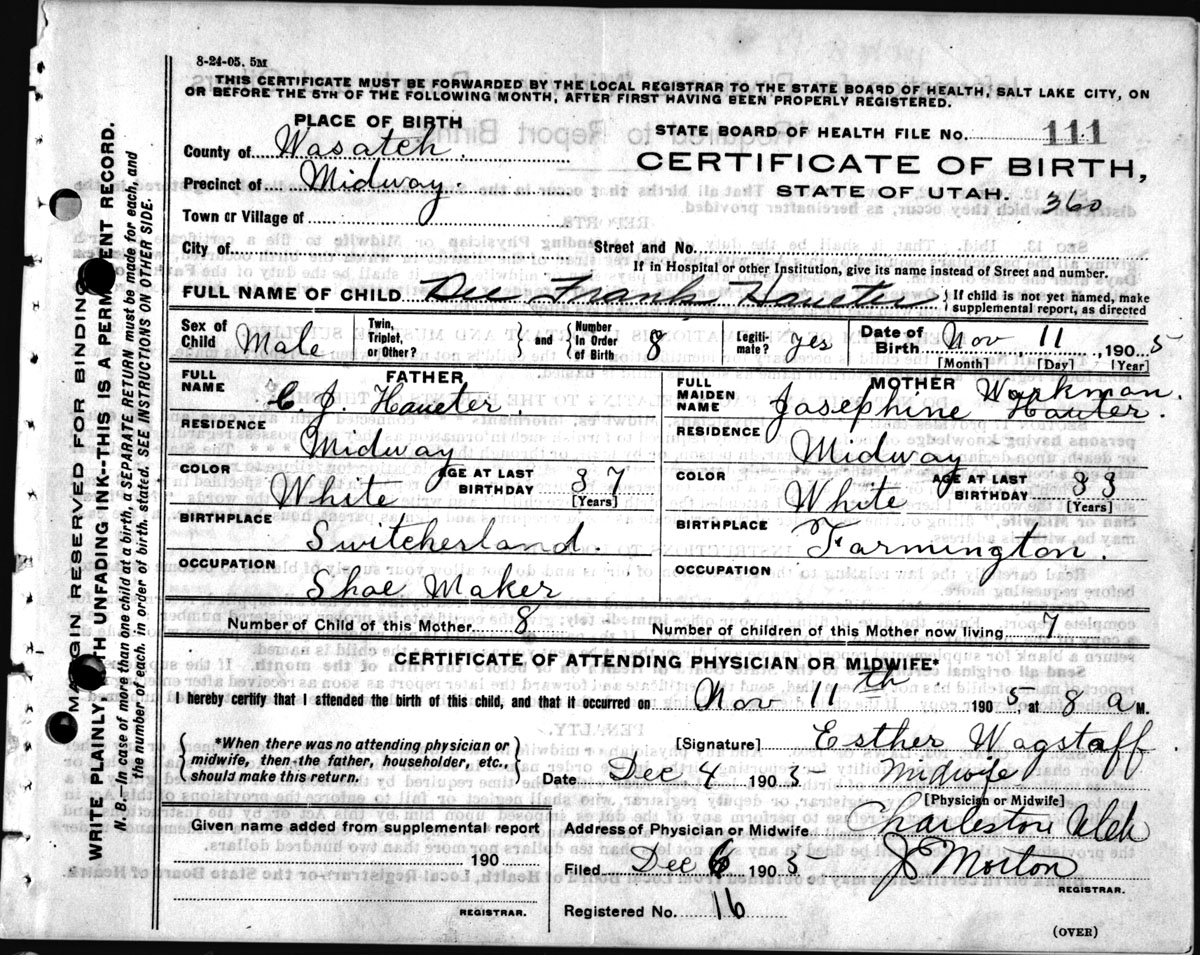 8-24-05. 5M
THIS CERTIFICATE MUST BE FORWARDED BY THE LOCAL REGISTRAR TO THE STATE BOARD OF HEALTH, SALT LAKE CITY, ON
OR BEFORE THE 5TH OF THE FOLLOWING MONTH, AFTER FIRST HAVING BEEN PROPERLY REGISTERED.
PLACE OF BIRTH
STATE BOARD OF HEALTH FILE No. 111
County of Wasatch.
CERTIFICATE OF BIRTH,
Precinct of Midway.
STATE OF UTAH.
360
Town or Village of
City of
Street and No.
If in Hospital or other Institution, give its name instead of Street and number.
FULL NAME OF CHILD Dee Frank Haueter { If child is not yet named, make supplemental report, as directed
Sex of Child Male
Twin, Triplet, or Other? } and { Number In Order of Birth 8
Legiti-mate? yes
Date of Birth Nov 11, 1905
[Month] [Day] [Year]
FATHER
FULL NAME C. J. Haueter.
MOTHER
FULL MAIDEN NAME Josephine Workman Hauter.
RESIDENCE Midway
RESIDENCE Midway
COLOR White
AGE AT LAST BIRTHDAY 37 [Years]
COLOR White
AGE AT LAST BIRTHDAY 33 [Years]
BIRTHPLACE Switcherland.
BIRTHPLACE Farmington.
OCCUPATION Shoe Maker
OCCUPATION
Number of Child of this Mother 8
Number of children of this Mother now living 7
CERTIFICATE OF ATTENDING PHYSICIAN OR MIDWIFE*
I hereby certify that I attended the birth of this child, and that it occurred on Nov 11th 1905, at 8 a M.
{ *When there was no attending physician or midwife, then the father, householder, etc., should make this return. }
[Signature] Esther Wagstaff.
Date Dec 4 1905
Midwife
[Physician or Midwife]
Given name added from supplemental report
190
REGISTRAR.
Address of Physician or Midwife Charleston Utah
Filed Dec 6 1905 J E Morton
REGISTRAR.
Registered No. 16
(OVER)
MARGIN RESERVED FOR BINDING
WRITE PLAINLY WITH UNFADING INK--THIS IS A PERMANENT RECORD.
N. B.—In case of more than one child at a birth, a SEPARATE RETURN must be made for each, and
the number of each, in order of birth, stated. SEE INSTRUCTIONS ON OTHER SIDE.